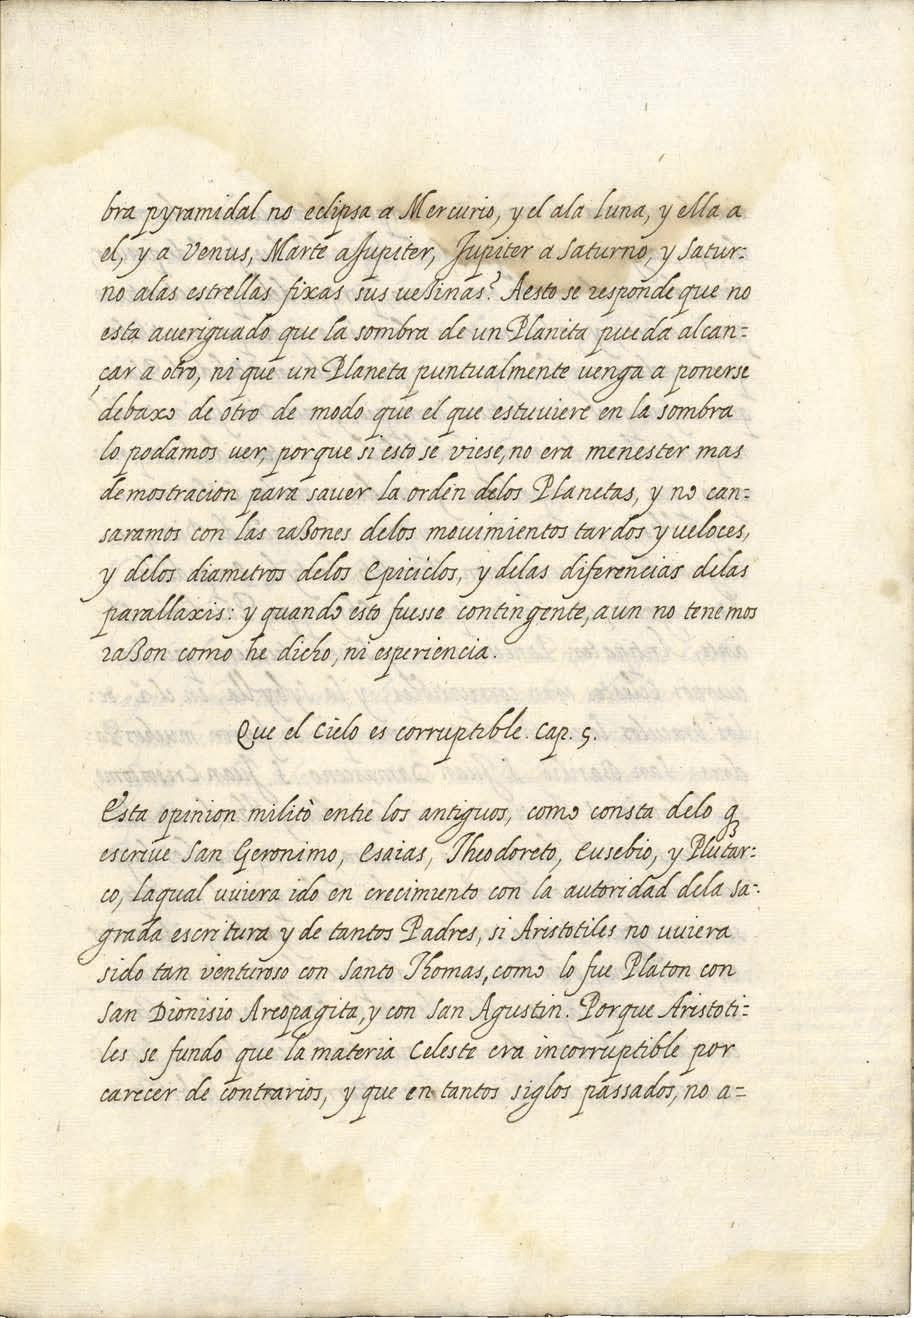 bra pyramidal no eclipsa a Mercurio, y el ala luna, y ella a
el, y a Venus, Marte a Jupiter, Jupiter a Saturno, y Satur:
no alas estrellas fixas sus veßinas? Aesto se responde que no
esta averiguado que la sombra de un Planeta pueda alcan=
çar a otro, ni que un Planeta puntualmente venga a ponerse
debaxo de otro de modo que el que estuviere en la sombra
lo podamos ver, porque si esto se viese, no era menester mas
demostracion para saver la orden delos Planetas, y no can=
saramos con las raßones delos movimientos tardos y veloces,
y delos diametros delos Epiciclos, y delas diferencias delas
parallaxis: y quando esto fuesse contingente, aun no tenemos
raßon como he dicho, ni esperiencia.
Que el Cielo es corruptible. Cap. 5.
Esta opinion militò entre los antiguos, como consta delo q̃
escrive San Geronimo, Esaias, Theodoreto, Eusebio, y Plutar:
co, laqual uviera ido en crecimiento con la autoridad dela sa:
grada escritura y de tantos Padres, si Aristotiles no uviera
sido tan venturoso con Santo Thomas, como lo fue Platon con
San Dionisio Areopagita, y con San Agustin. Porque Aristoti=
les se fundo que la materia Celeste era incorruptible por
carecer de contrarios, y que en tantos siglos passados, no a=